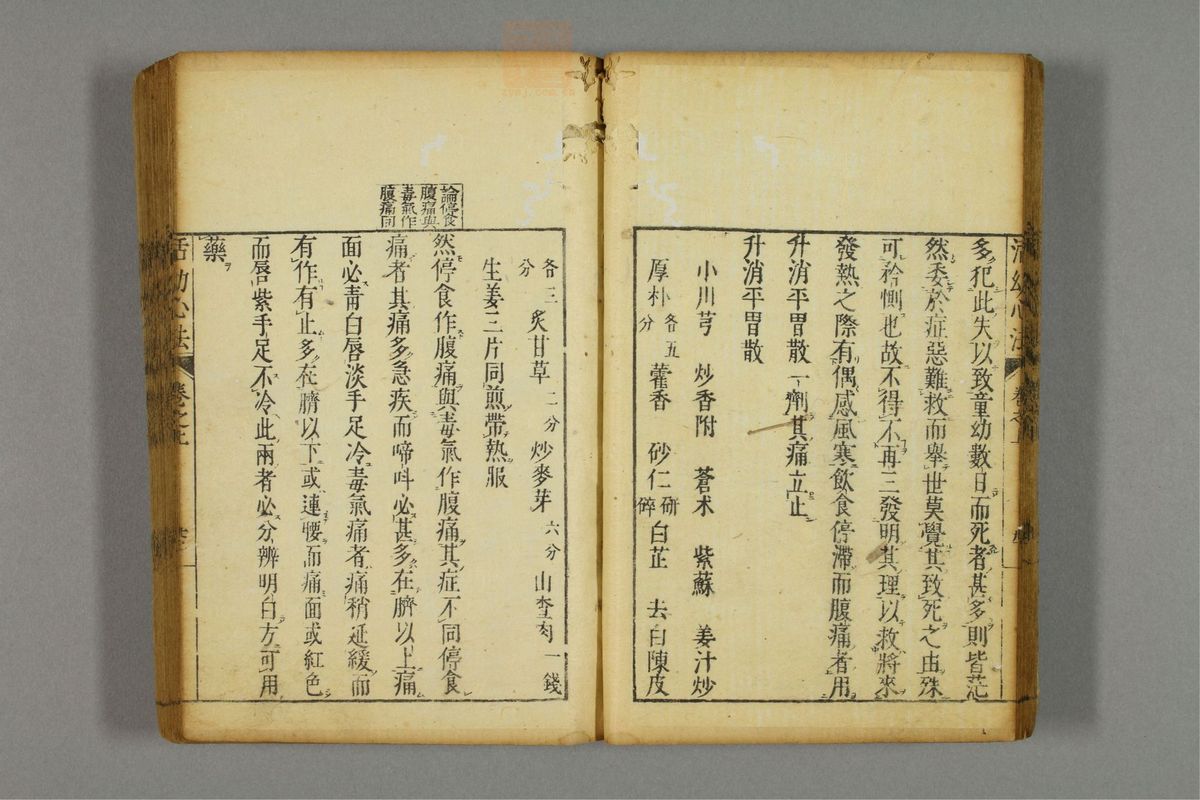 多犯此失以致童幼數日而死者甚多則皆茫
然委於症惡難救而舉世莫覺其致死之由殊
可矜惻也故不得不再三發明其理以救將來
發熱之際有偶感風寒飲食停滯而腹痛者用
升消平胃散一劑其痛立止
升消平胃散
小川芎 炒香附 蒼术 紫蘇 姜汁炒
厚朴各五分 藿香 砂仁研碎 白芷 去白陳皮
各三分 炙甘草二分 炒麥芽六分 山查肉一錢
生姜三片同煎帶熱服
論停食
腹痛與
毒氣作
腹痛同
然停食作腹痛與毒氣作腹痛其症不同停食
痛者其痛多急疾而啼呌必甚多在臍以上痛
面必靑白唇淡手足冷毒氣痛者痛稍延緩而
有作有止多在臍以下或連腰而痛面或紅色
而唇紫手足不冷此兩者必分辨明白方可用
藥
活幼心法 卷之上